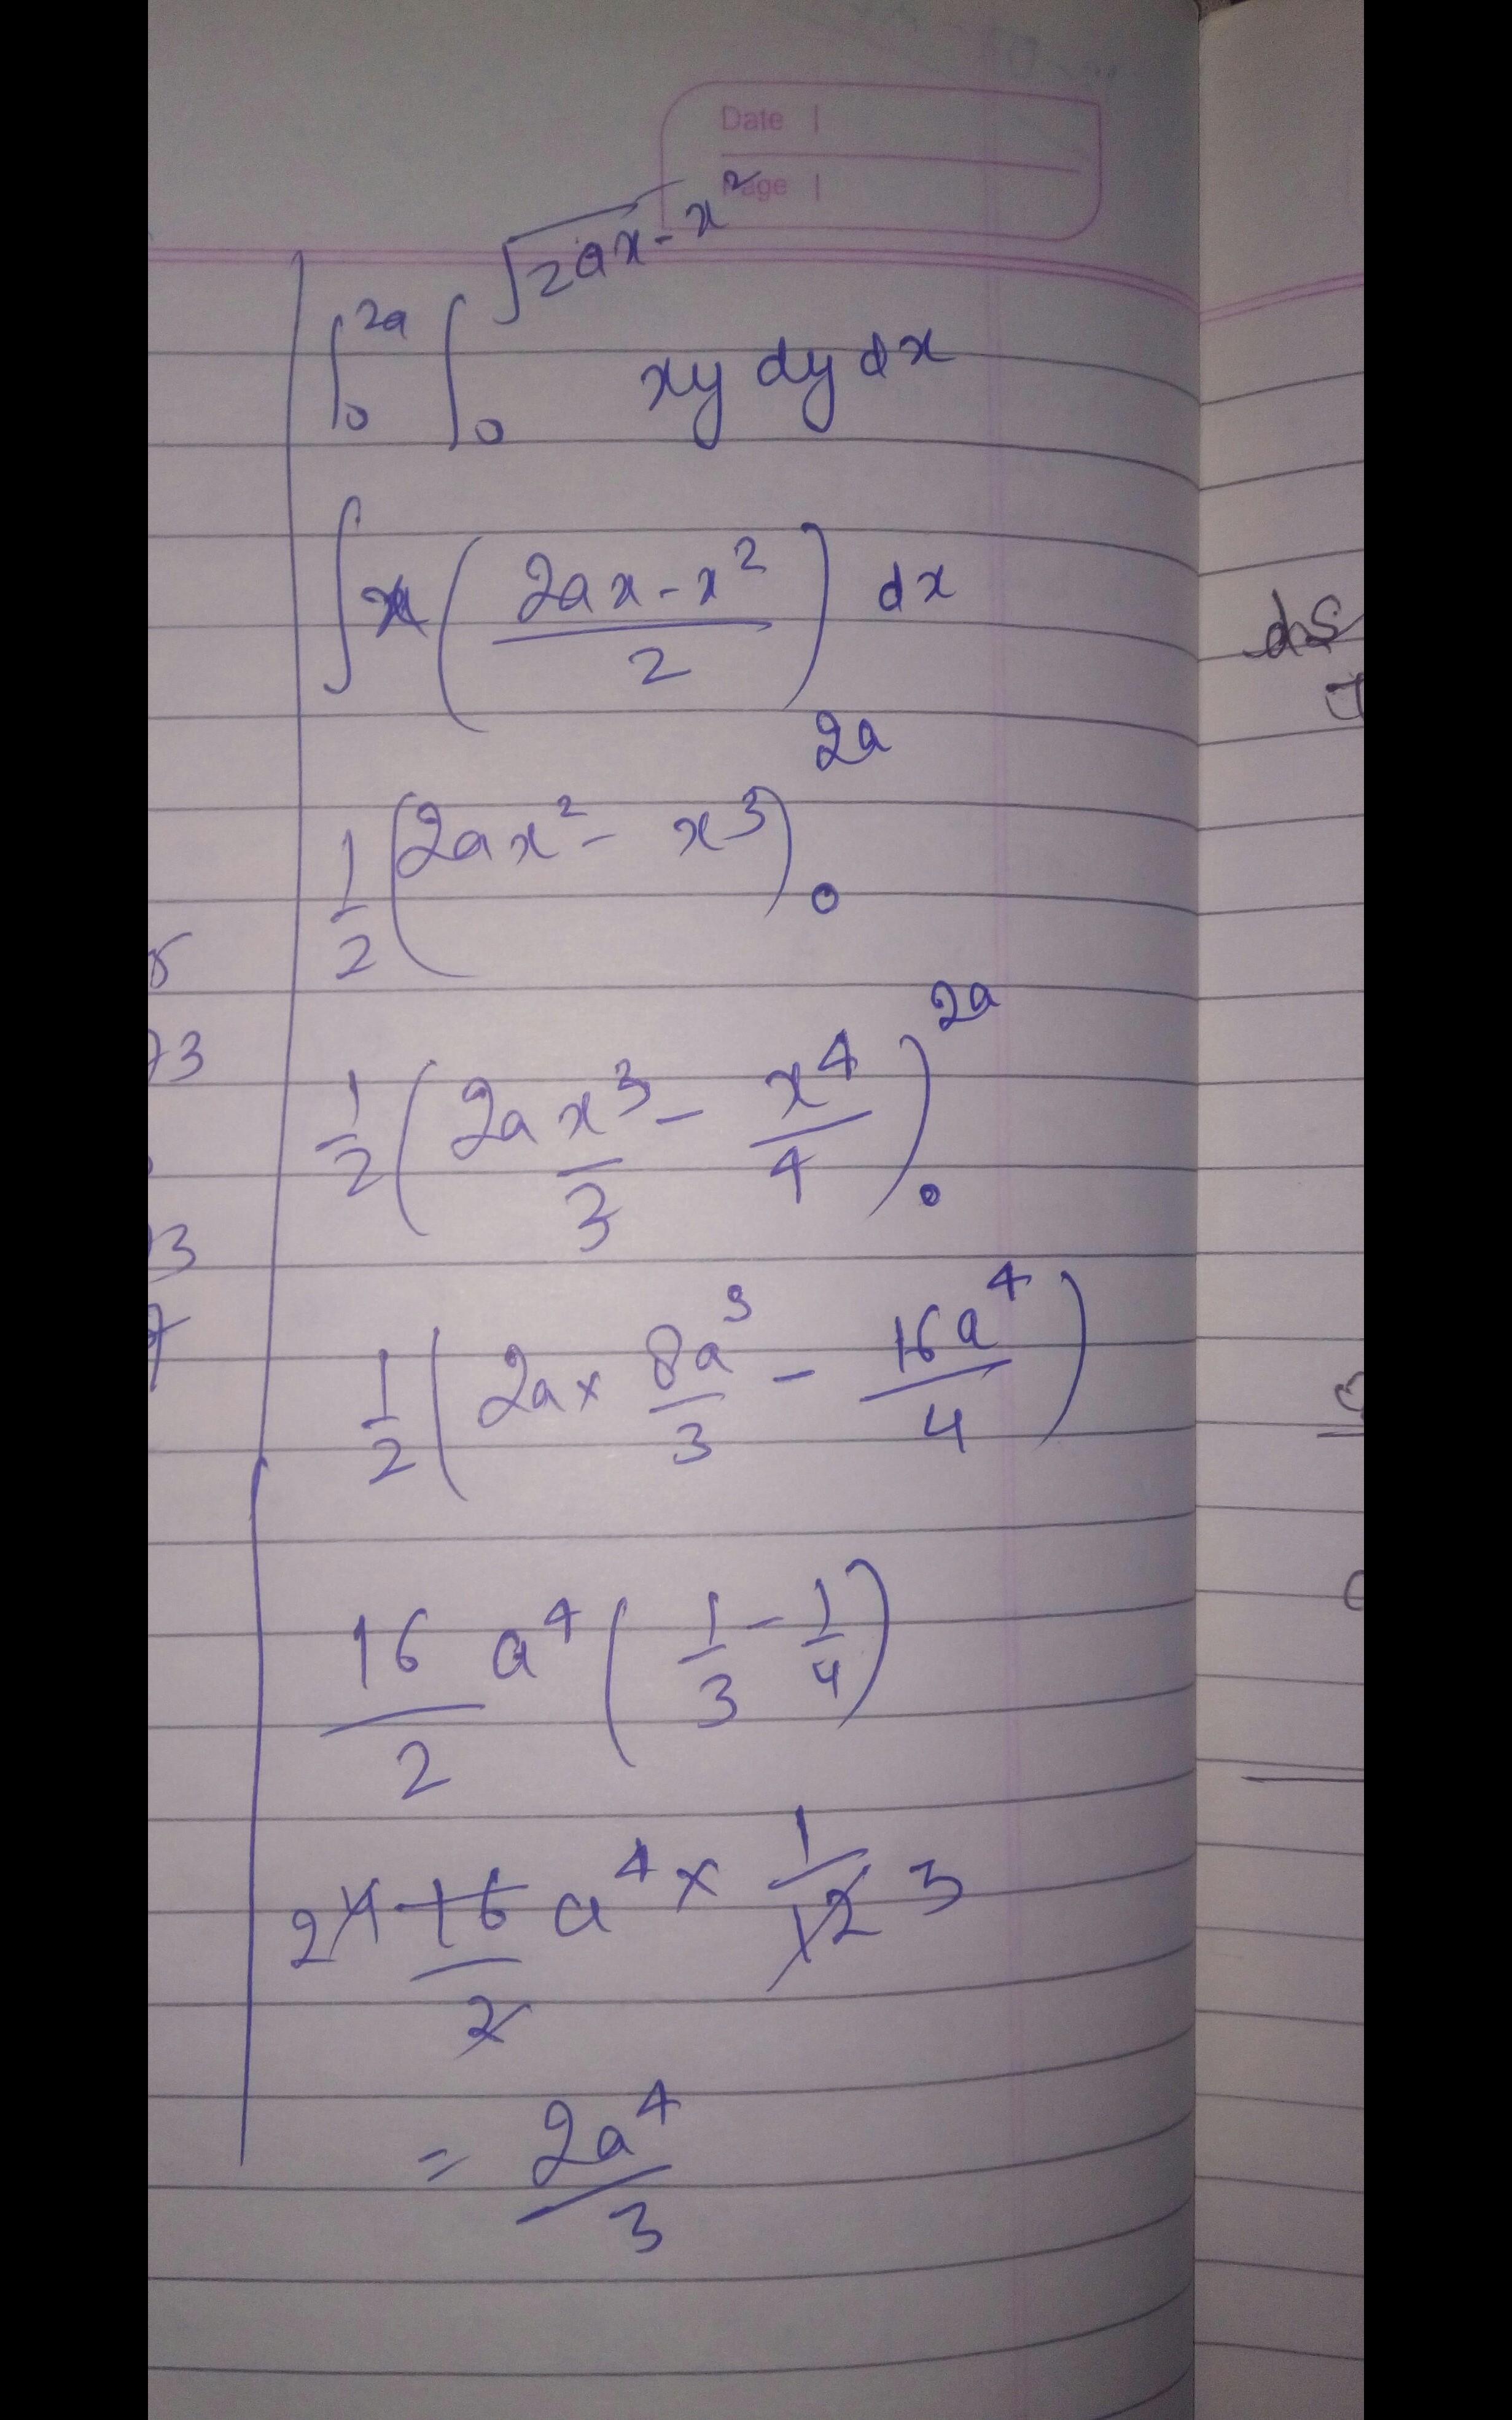 Date
Page
∫₀^2a ∫₀^√(2ax-x²) xy dy dx
∫ x ( (2ax-x²)/2 ) dx
1/2 ( 2ax² - x³ )₀^2a
1/2 ( 2a x³/3 - x⁴/4 )₀^2a
1/2 ( 2a × 8a³/3 - 16a⁴/4 )
16/2 a⁴ ( 1/3 - 1/4 )
2 4 16/2 a⁴ × 1/12 3
= 2a⁴/3
ds